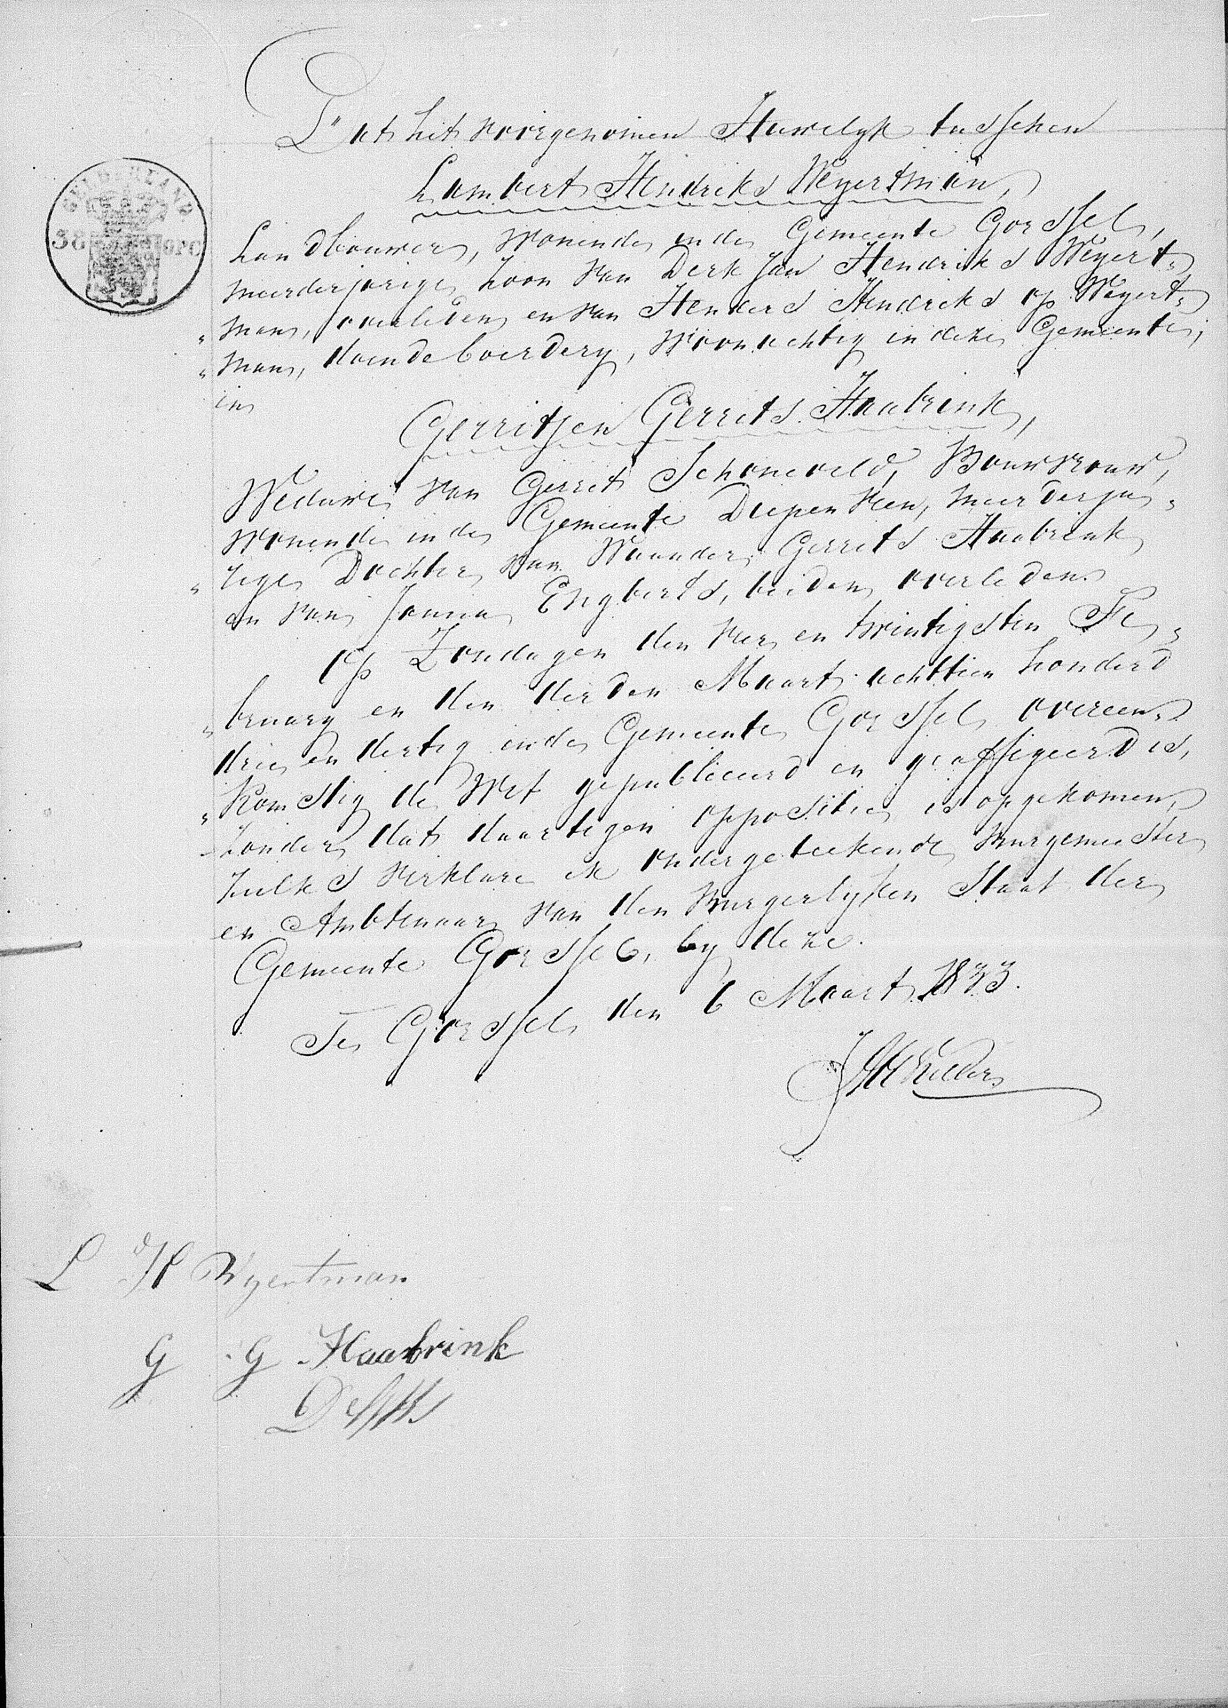 Dat het voorgenomen Huwelyk tusschen
Lambert Hendriks Weyertman,
Landbouwer, wonende in de Gemeente Gorssel,
meerderjarige Zoon van Derk Jan Hendriks Weyert=
„man, overleden en van Henders Hendriks op Weyert=
„man, doende boerdery, woonachtig in deze Gemeente,
en
Gerritjen Gerrits Haabrink,
Weduwe van Gerrit Schoneveld, Bouwvrouw,
wonende in de Gemeente Diepenveen, meerderja=
„rige Dochter van Waander Gerrits Haabrink
en van Janna Engberts, beiden overleden
op Zondagen den vier en twintigsten Fe=
„bruary en den derden Maart achttien honderd
drie en dertig in de Gemeente Gorssel overeen=
„komstig de Wet gepubliceerd en geaffigeerd is,
zonder dat daartegen oppositie is opgekomen,
zulks verklare ik ondergeteekende Burgemeester
en Ambtenaar van den Burgerlyken Staat der
Gemeente Gorssel, by deze.
Te Gorssel den 6 Maart 1833.
GELDERLAND
38
OPC
L H Wyertman
G G Haabrink